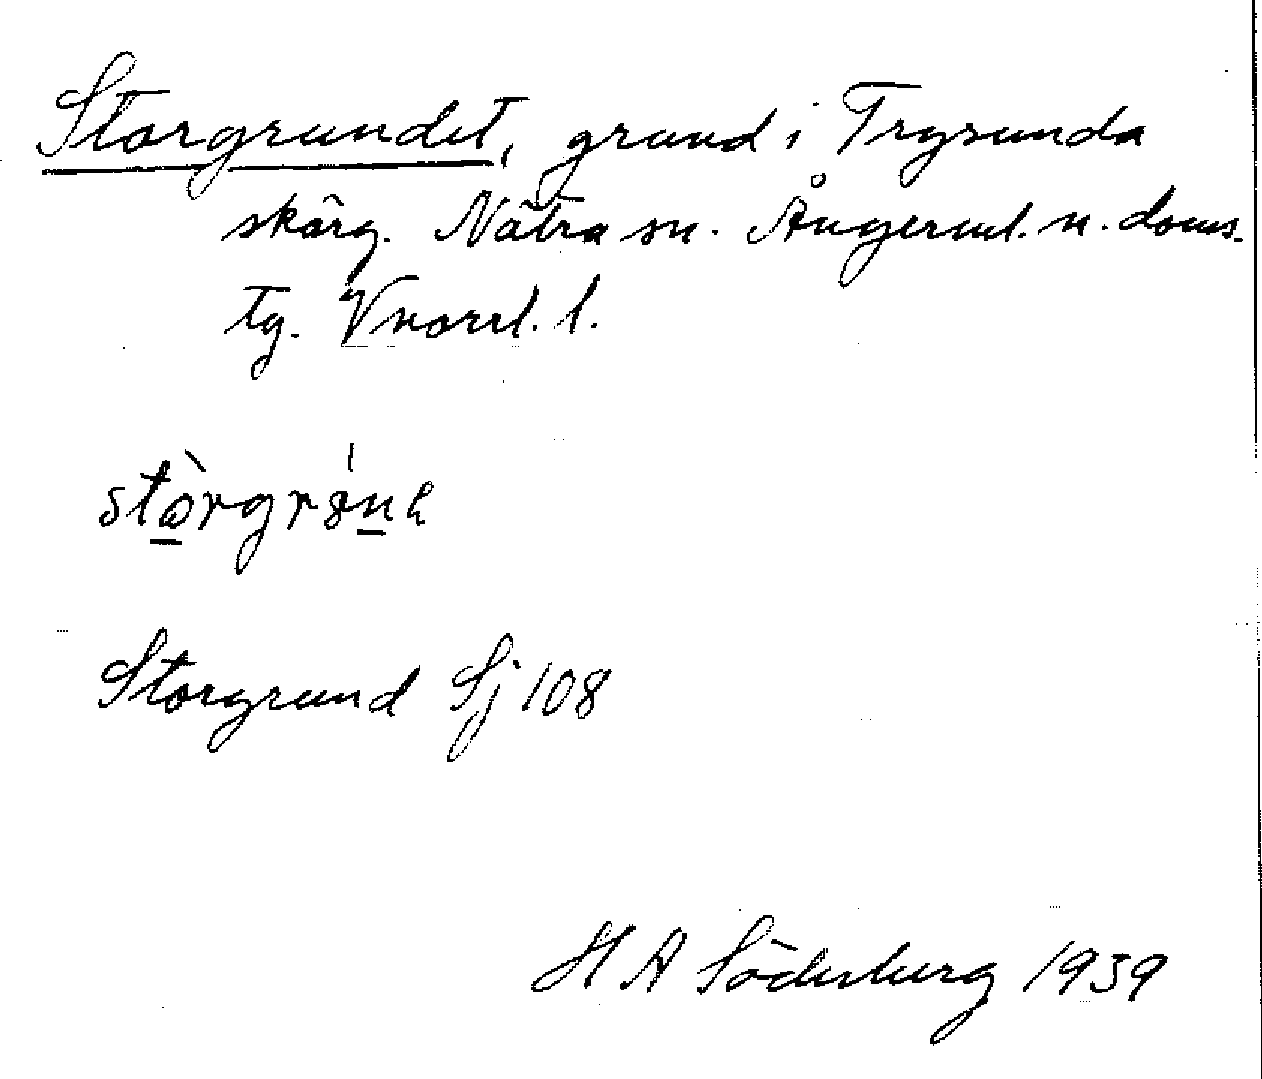 Storgrundet, grund i Trysunda
skärg. Nätra sn. Ångerml. n. doms.
tg. Vnorrl. l.
Storgrund Sj 108
H A Söderberg 1939